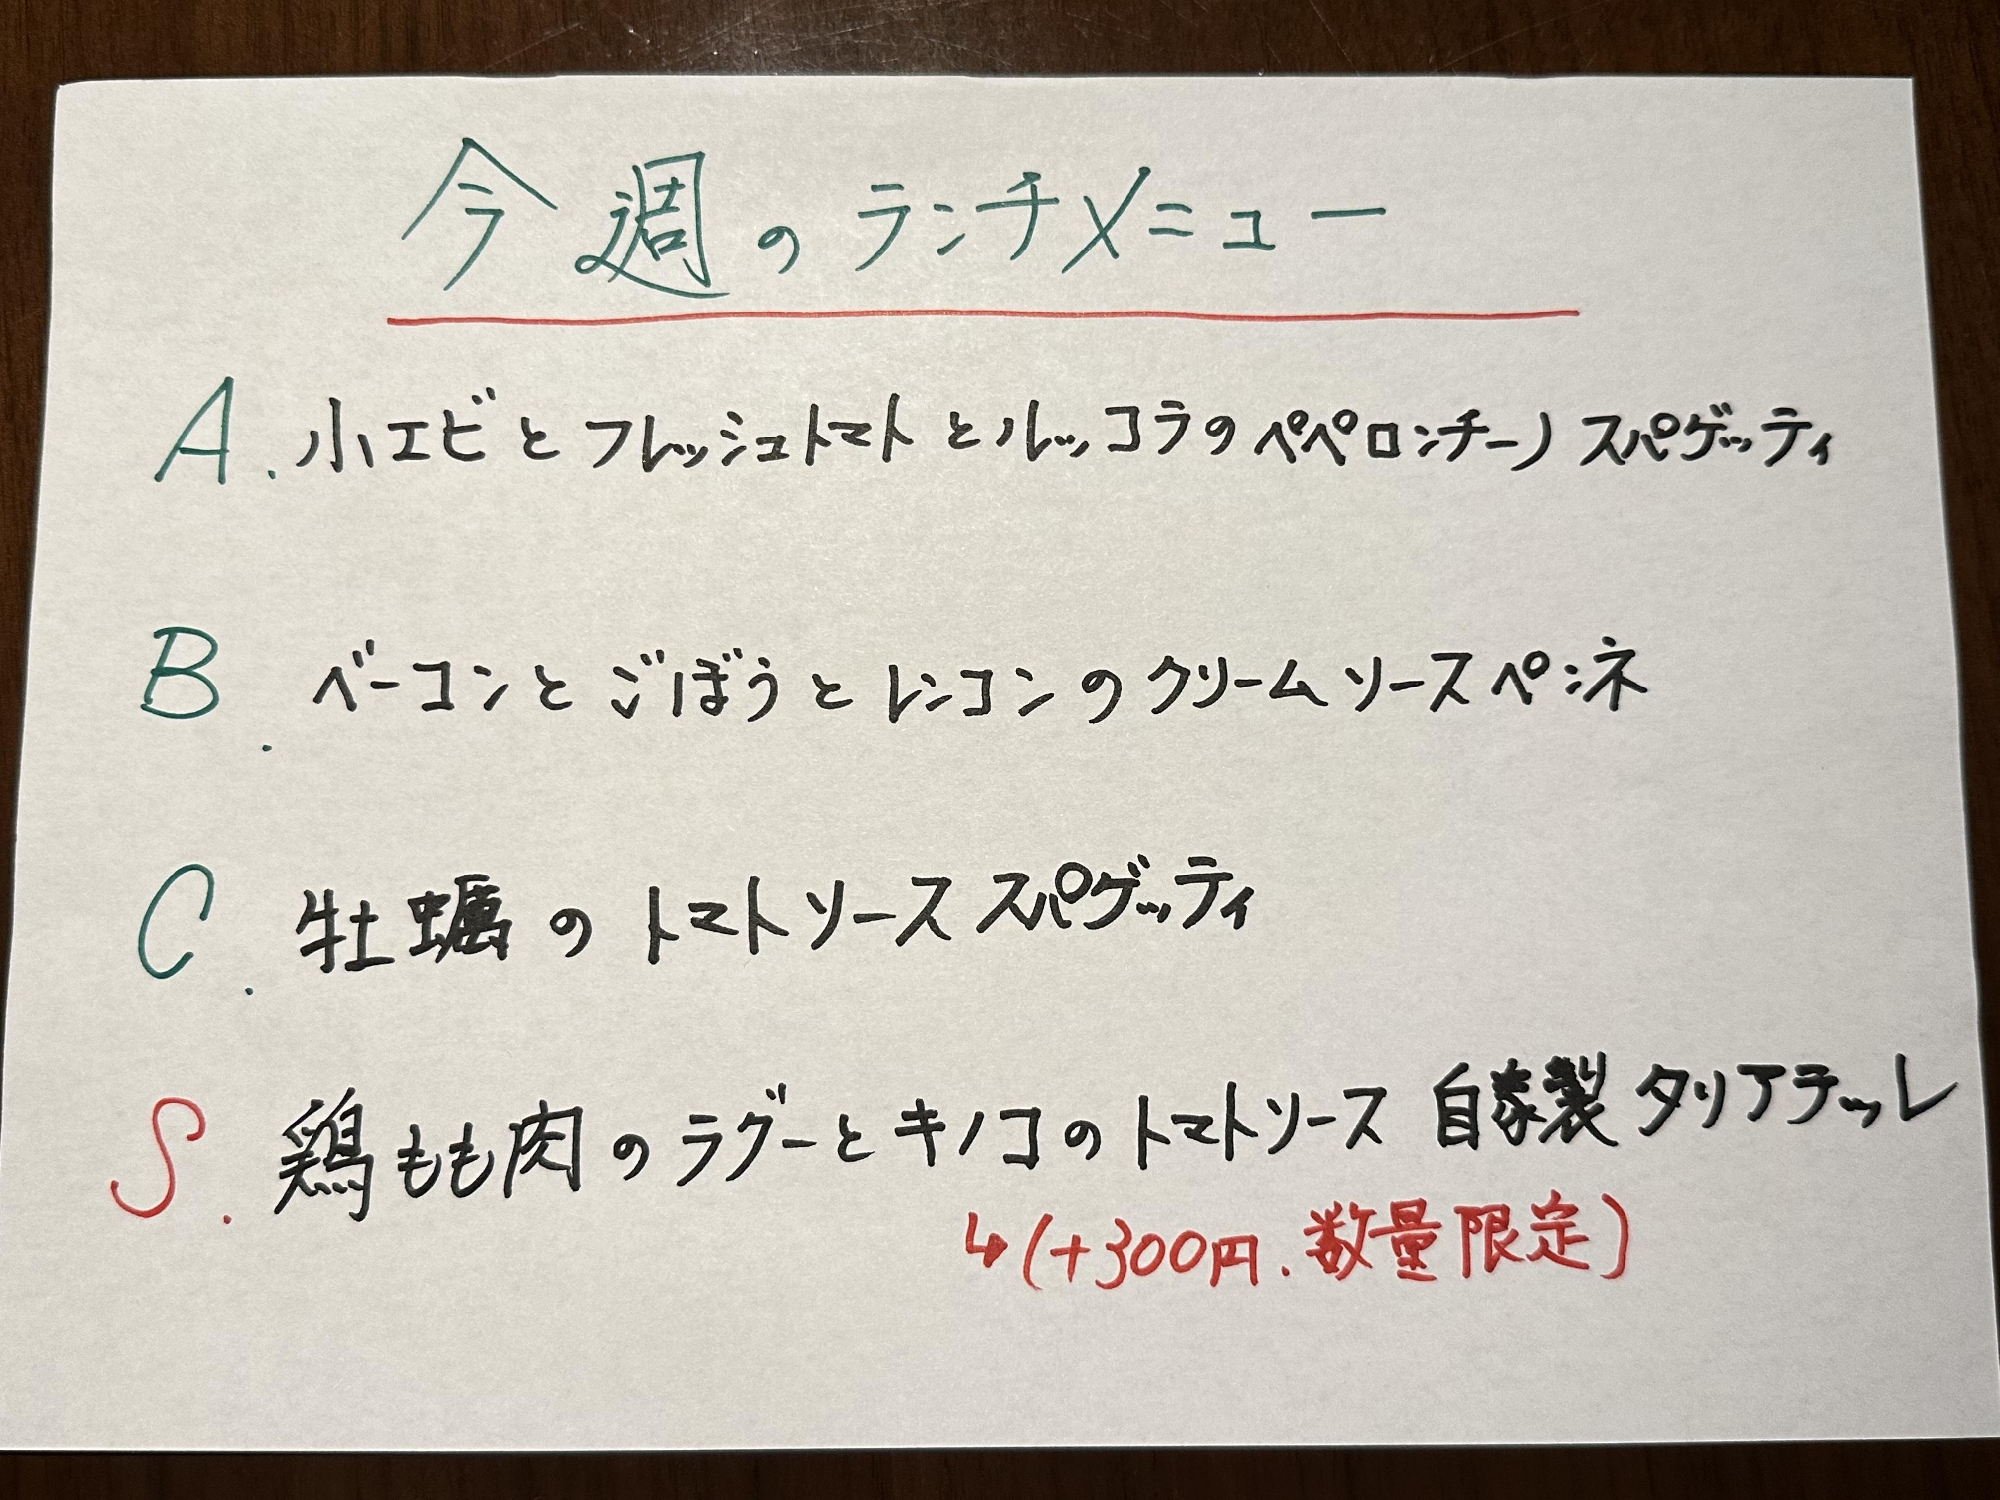 今週のランチメニュー
A. 小エビとフレッシュトマトとルッコラのペペロンチーノ スパゲッティ
B. ベーコンとごぼうとレンコンのクリームソースペンネ
C. 牡蠣のトマトソース スパゲッティ
S. 鶏もも肉のラグーとキノコのトマトソース 自家製 タリアテッレ
↳(+300円.数量限定)